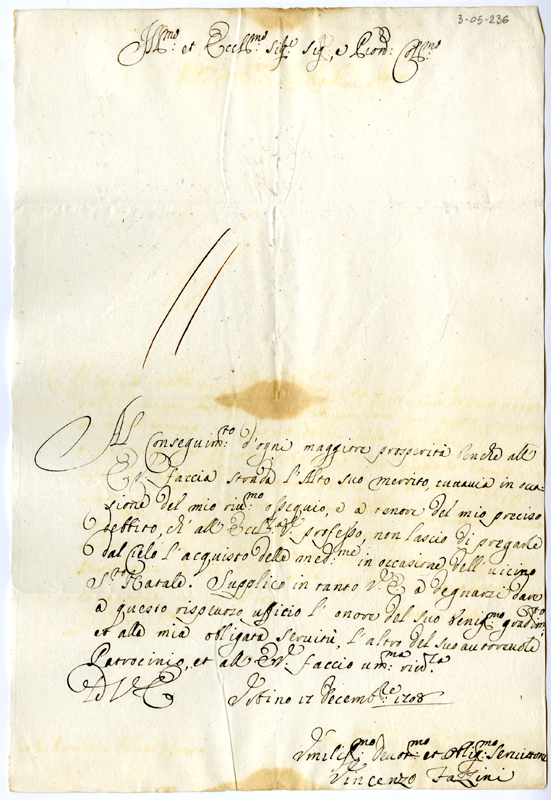 3-05-236
Ill:mo et Eccl:mo Sig:re Sig:, e Pron: Col:mo
Al Conseguim:to d'ogni maggiore prosperità benche all'
E.V. faccia strada l'Alto suo merrito, tuttavia in occa-
sione del mio riu:mo ossequio, e a tenore del mio preciso
debbito, ch'all'Eccl:za V. professo, non lascio di pregarle
dal Cielo l'acquisto delle med:me in occasione dell'uicino
S.to Natale. Supplico in tanto V.E. a degnarsi dare
a questo rispettoso ufficio l'onore del suo benig:mo gradim:to
et alla mia obligata Seruitù, l'altro del suo autoreuole
Patrocinio, et all'E.V. faccio um:ma riu:za
Di V.E. 17 Decemb:re 1708
Vmiliss:mo Deuot:mo et Oblig:mo Seruitore
Vincenzo Fazzini